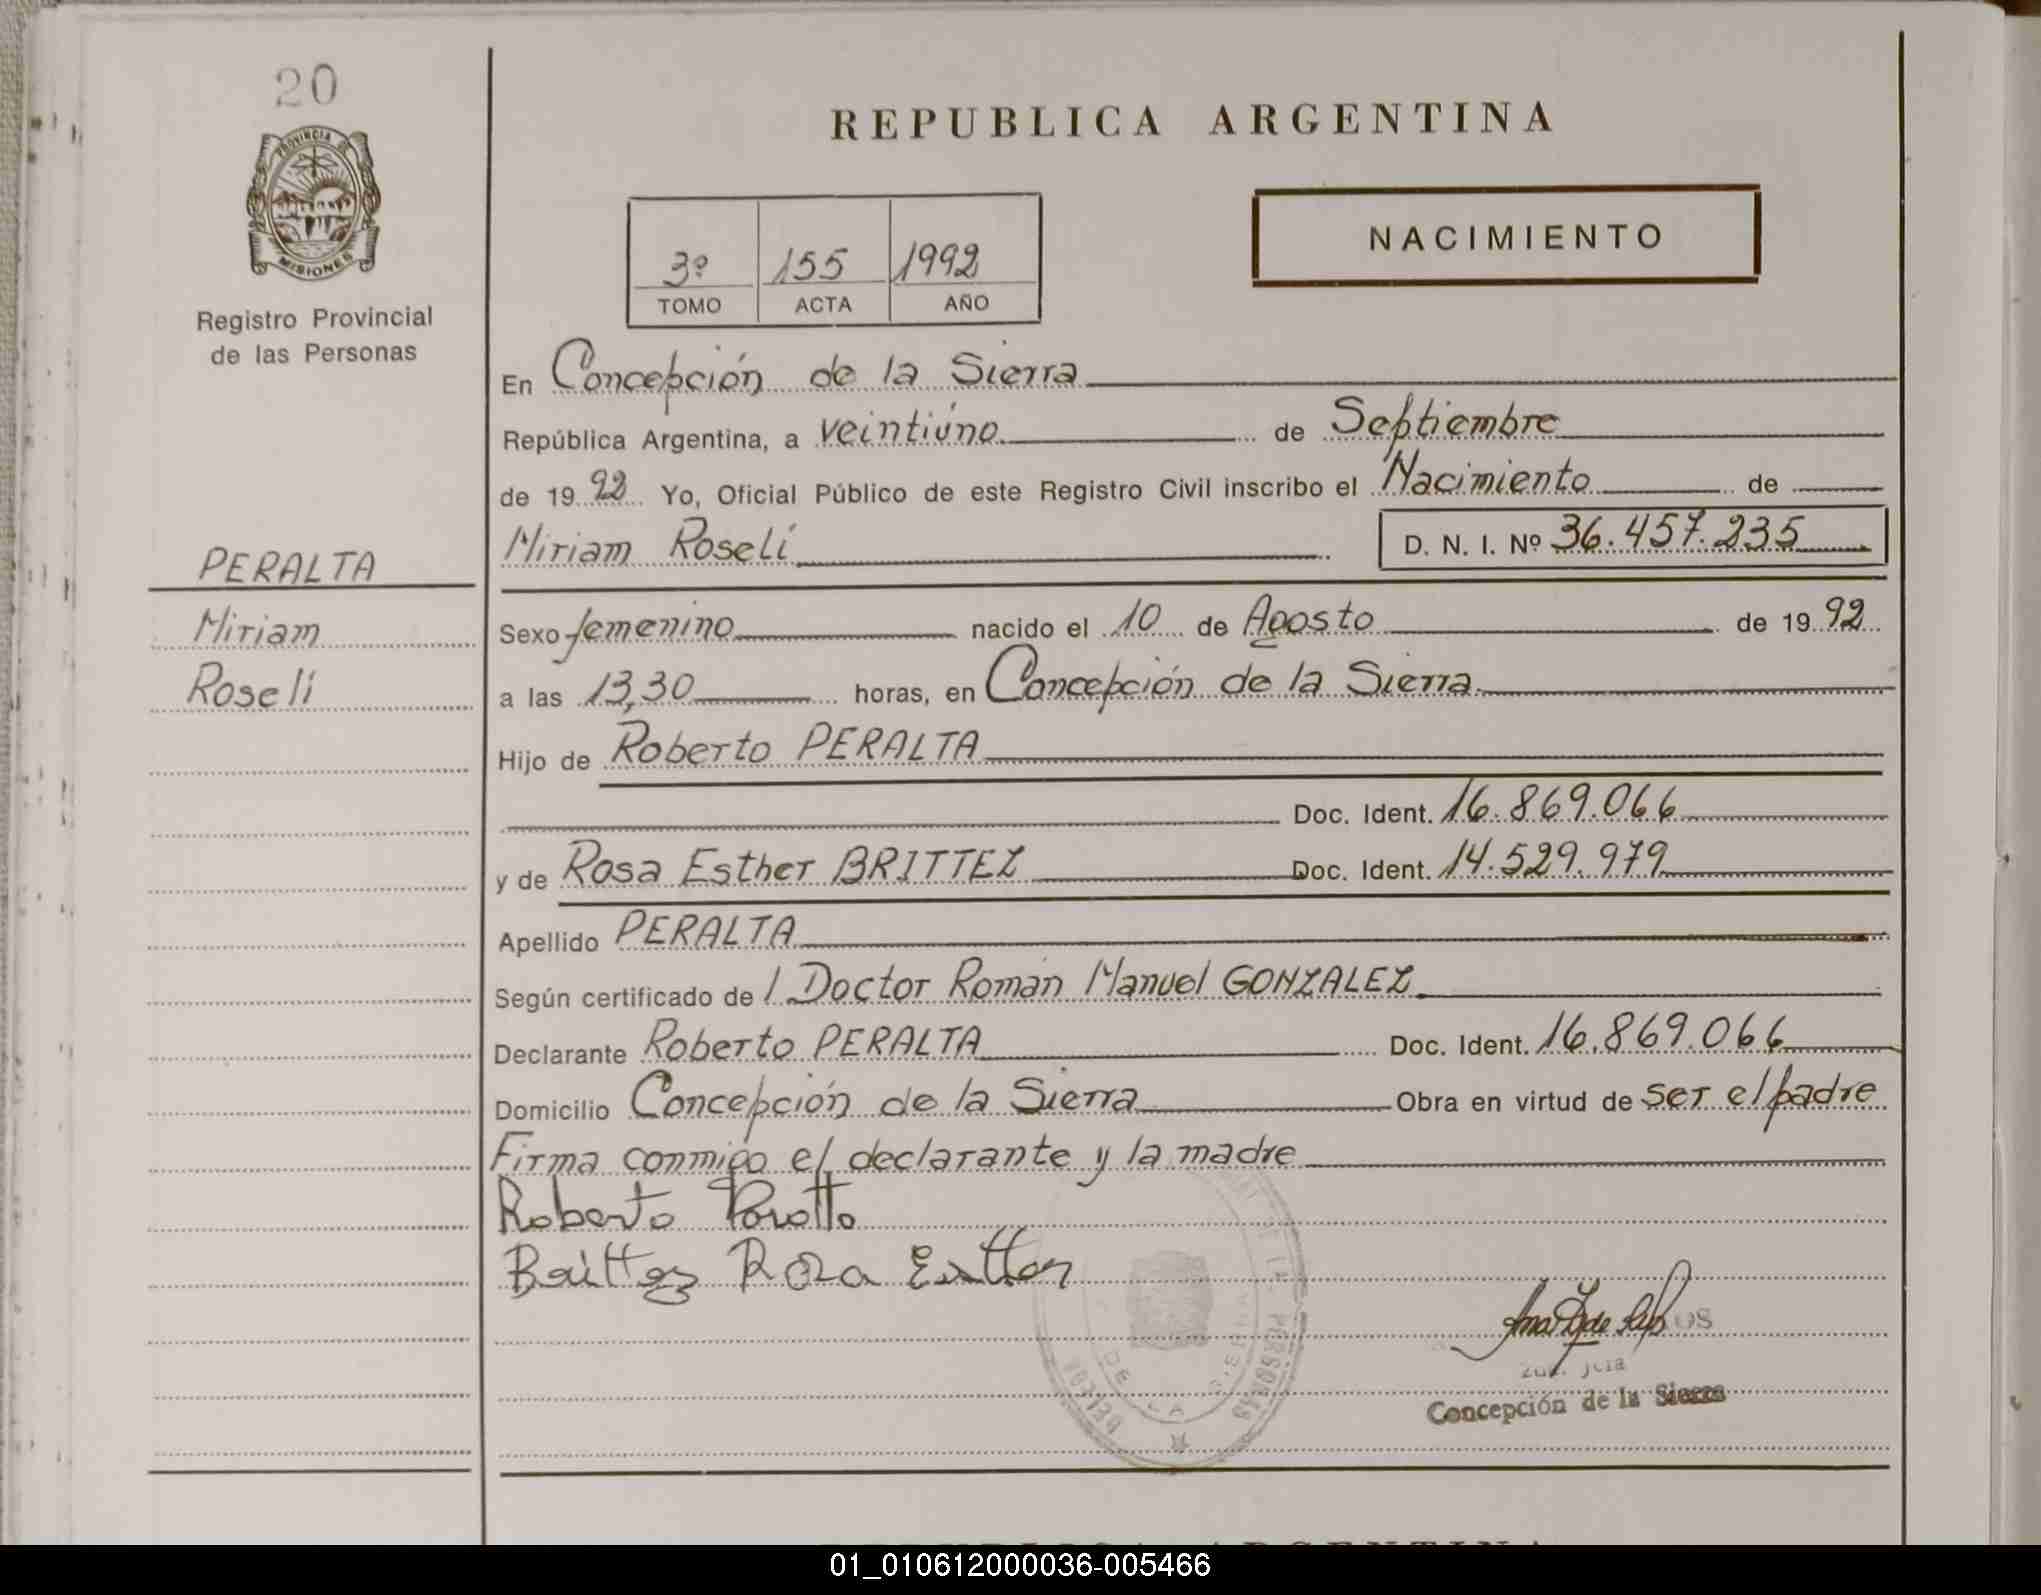 20
PROVINCIA DE
MISIONES
Registro Provincial
de las Personas
PERALTA
Miriam
Roselí
REPUBLICA ARGENTINA
NACIMIENTO
3º 155 1992
TOMO ACTA AÑO
En Concepción de la Sierra
República Argentina, a veintiúno de Septiembre
de 1992 Yo, Oficial Público de este Registro Civil inscribo el Nacimiento de
Miriam Roselí D. N. I. Nº 36.457.235
Sexo femenino nacido el 10 de Agosto de 1992
a las 13,30 horas, en Concepción de la Sierra
Hijo de Roberto PERALTA
Doc. Ident. 16.869.066
y de Rosa Esther BRITTEZ Doc. Ident. 14.529.979
Apellido PERALTA
Según certificado de / Doctor Román Manuel GONZALEZ
Declarante Roberto PERALTA Doc. Ident. 16.869.066
Domicilio Concepción de la Sierra Obra en virtud de ser el padre
Firma conmigo el declarante y la madre
Roberto Peralta
Brittez Rosa Esther
Concepción de la Sierra
01_010612000036-005466